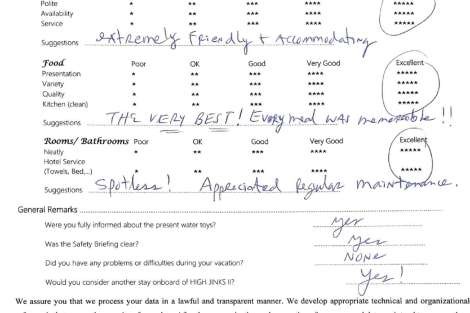 Polite * ** *** **** *****
Availability * ** *** **** *****
Service * ** *** **** *****
Suggestions extremely Friendly + Accommodating
Food Poor OK Good Very Good Excellent
Presentation * ** *** **** *****
Variety * ** *** **** *****
Quality * ** *** **** *****
Kitchen (clean) * ** *** **** *****
Suggestions THE VERY BEST! Every meal was memorable !!
Rooms/ Bathrooms Poor OK Good Very Good Excellent
Neatly * ** *** **** *****
Hotel Service
(Towels, Bed,..) * ** *** **** *****
Suggestions Spotless! Appreciated Regular maintenance.
General Remarks
Were you fully informed about the present water toys? yes
Was the Safety Briefing clear? yes
Did you have any problems or difficulties during your vacation? NONE
Would you consider another stay onboard of HIGH JINKS II? Yes!
We assure you that we process your data in a lawful and transparent manner. We develop appropriate technical and organizational